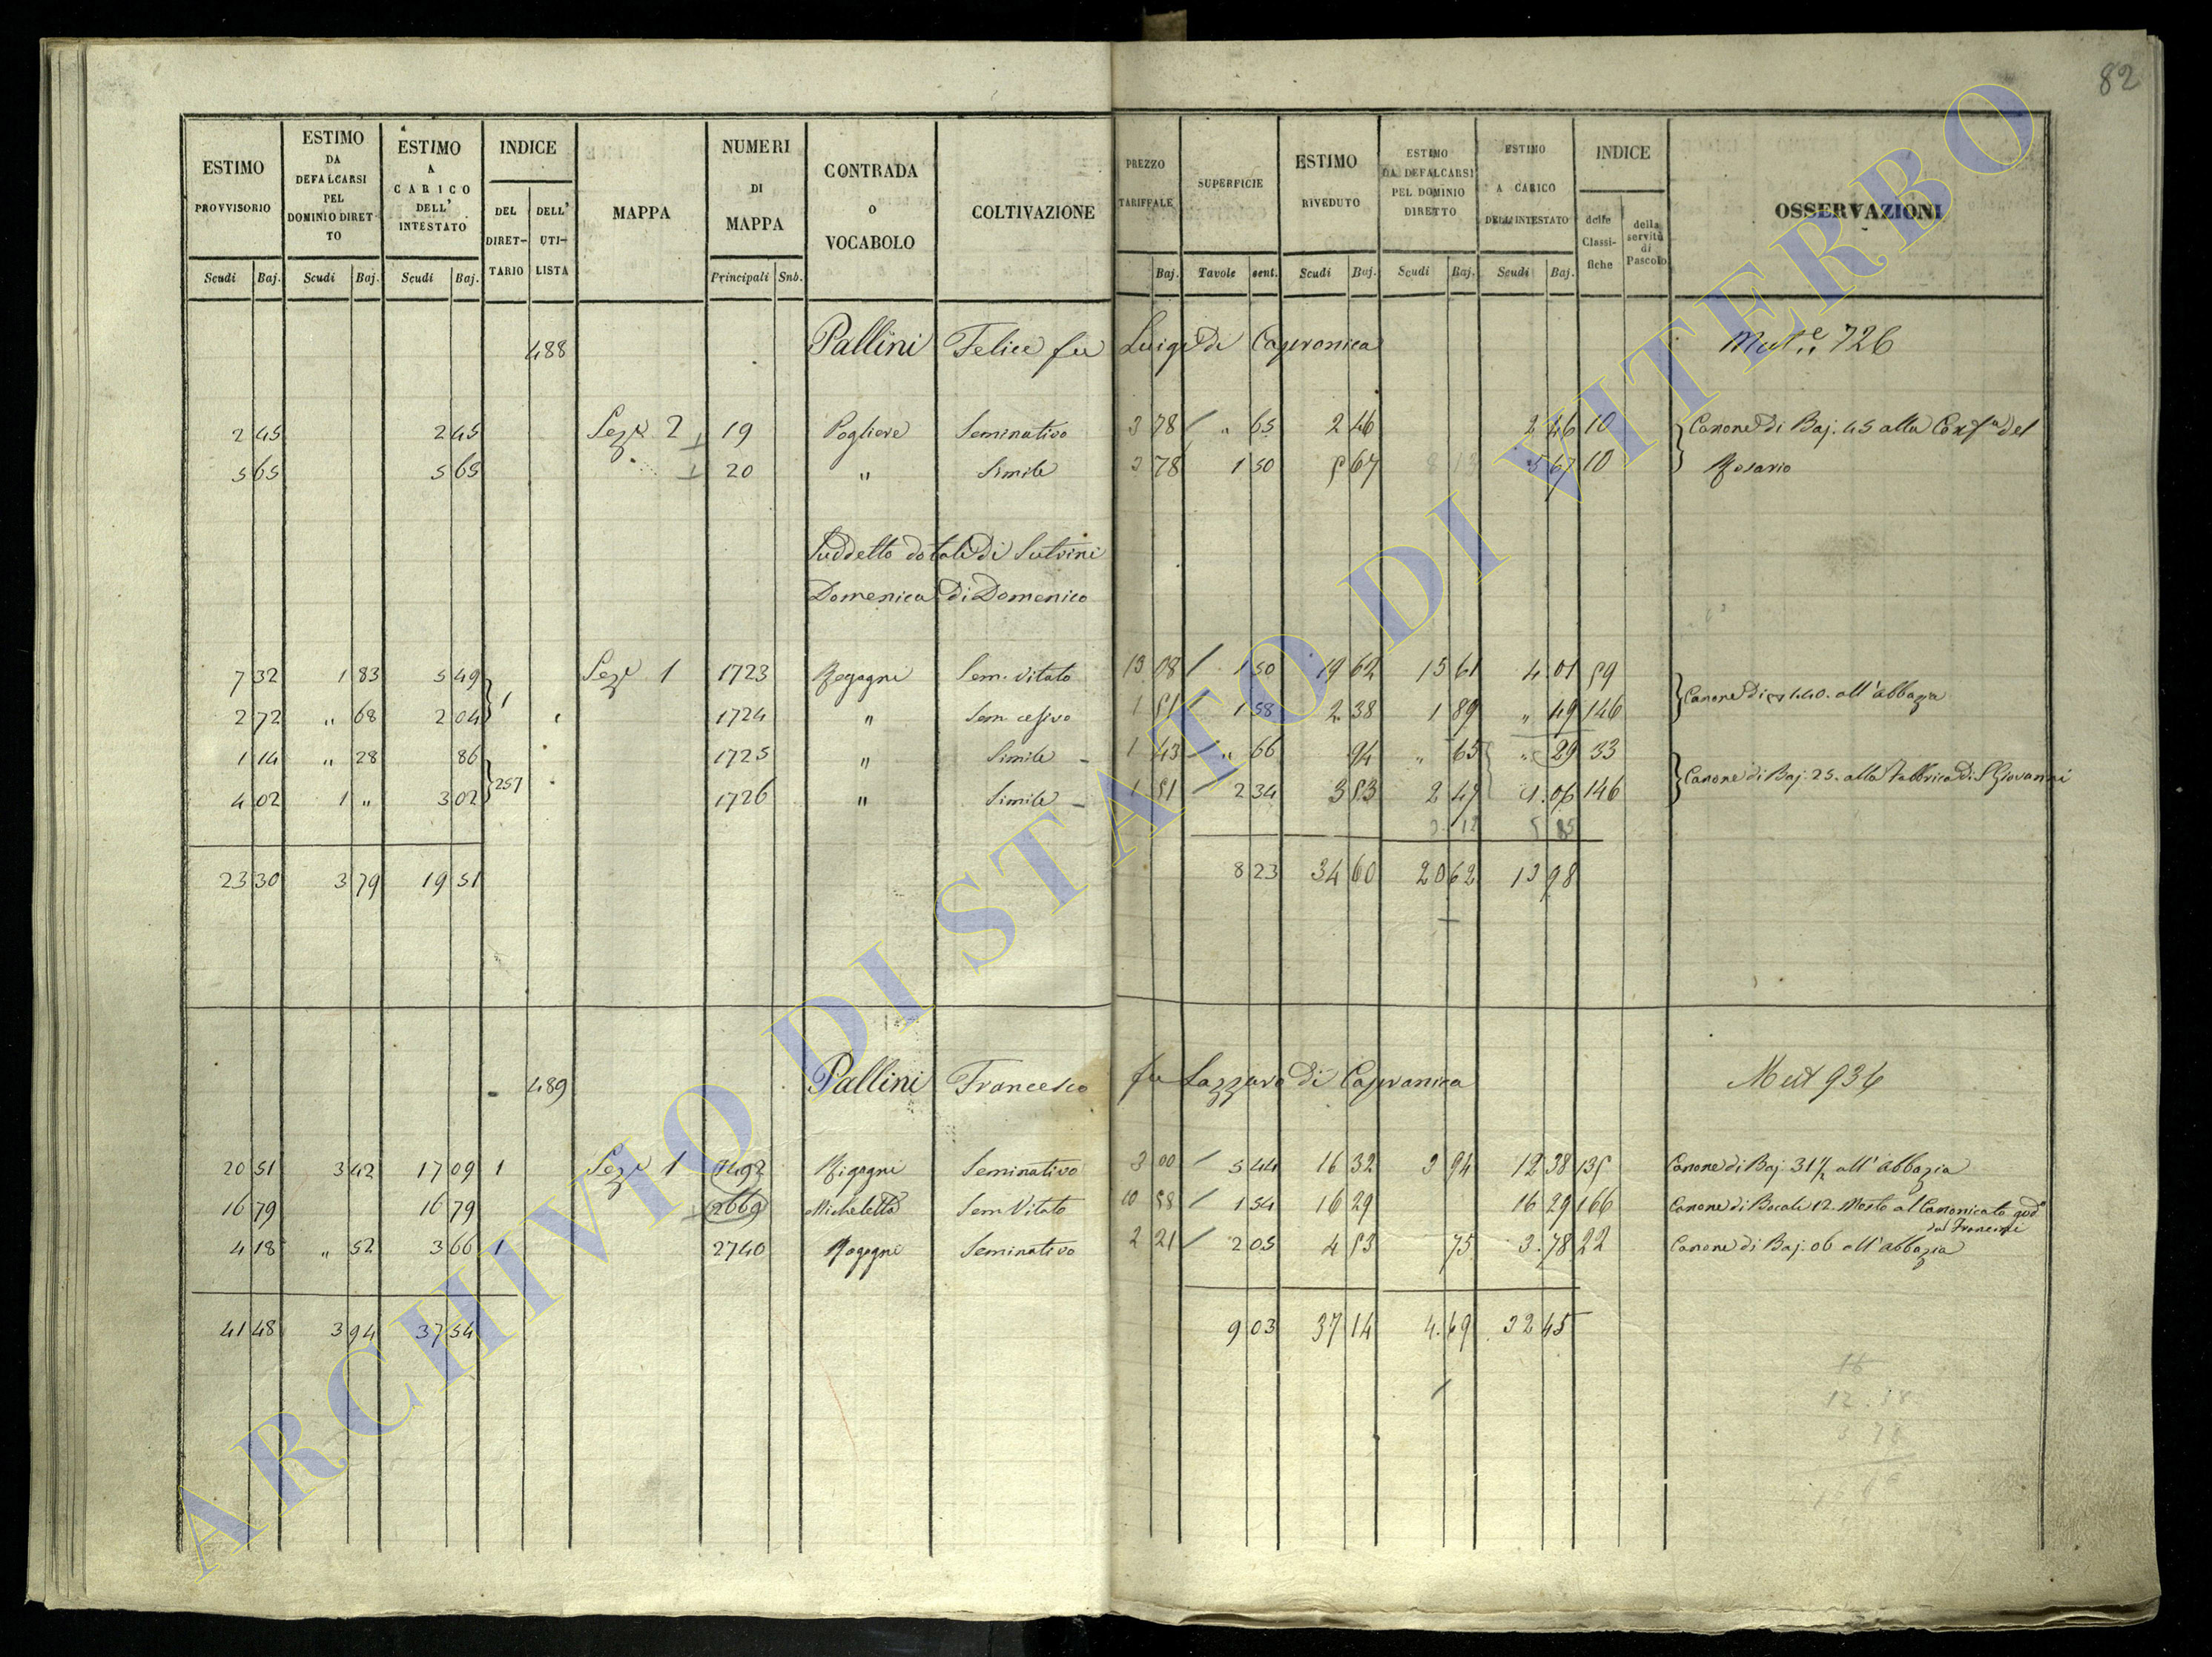 82
ESTIMO PROVVISORIO | ESTIMO DA DEFALCARSI PEL DOMINIO DIRETTO | ESTIMO A CARICO DELL' INTESTATO | INDICE | MAPPA | NUMERI DI MAPPA | CONTRADA O VOCABOLO | COLTIVAZIONE | PREZZO TARIFFALE | SUPERFICIE | ESTIMO RIVEDUTO | ESTIMO DA DEFALCARSI PEL DOMINIO DIRETTO | ESTIMO A CARICO DELL'INTESTATO | INDICE | OSSERVAZIONI
DEL DIRETTARIO | DELL' UTILISTA | delle Classifiche | della servitù di Pascolo
Scudi | Baj. | Scudi | Baj. | Scudi | Baj. | Principali | Snb. | Baj. | Tavole | cent. | Scudi | Baj. | Scudi | Baj. | Scudi | Baj.
488 Pallini Felice fu Luigi di Capranica Mut.e 726
2 45 2 45 Sez.e 2 19 Pogliere Seminativo 3 78 " 65 2 46 2 46 10 Canone di Baj. 45 alla Conf.a del
5 65 5 65 20 " Simile 3 78 1 50 5 67 5 67 10 Rosario
Suddetto dotali di Sutrini
Domenica di Domenico
7 32 1 83 5 49 1 Sez.e 1 1723 Regagni Sem. Vitato 13 08 1 50 19 62 15 61 4 01 59
2 72 " 68 2 04 1724 " Sem. cesivo 1 51 1 58 2 38 1 89 " 49 146 Canone di 1.40. all'abbazia
1 14 " 28 86 257 1725 " Simile 1 43 " 66 94 " 65 " 29 33
4 02 1 " 3 02 1726 " Simile 1 51 2 34 3 53 2 47 1.06 146 Canone di Baj. 25. alla Fabbrica di S Giovanni
23 30 3 79 19 51 8 23 34 60 20 62 13 98
489 Pallini Francesco fu Lazzaro di Capranica Mut 934
20 51 3 42 17 09 1 Sez.e 1 Rigagni Seminativo 3 00 5 44 16 32 3 94 12 38 135 Canone di Baj 31 1/2 all'abbazia
16 79 16 79 2669 Micheletta Sem Vitato 10 58 1 54 16 29 16 29 166 Canone di Bocali 12. Mosto al Canonicato god.o
dal Francini
4 18 " 52 3 66 1 2740 Ragagni Seminativo 2 21 2 05 4 53 75 3.78 22 Canone di Baj. 06 all'abbazia
41 48 3 94 37 54 9 03 37 14 4.69 32 45
16
12.38
3 78
ARCHIVIO DI STATO DI VITERBO